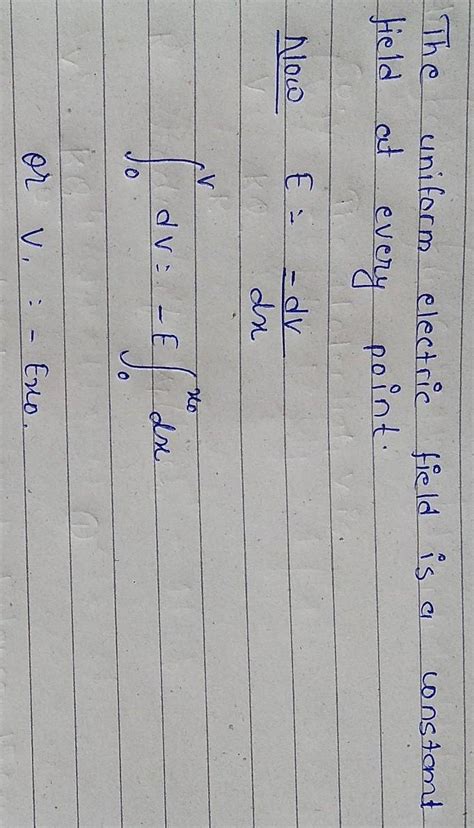 The uniform electric field is a constant
field at every point.
Now E = -dv/dx
∫₀^V dv = -E ∫₀^x₀ dx
or V, = -Ex₀.